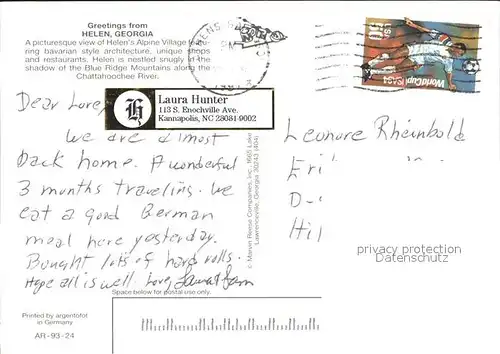 Greetings from
HELEN, GEORGIA
A picturesque view of Helen's Alpine Village
ring bavarian style architecture, unique shops
and restaurants. Helen is nestled snugly in the
shadow of the Blue Ridge Mountains along the
Chattahoochee River.
PM
WorldCup
Laura Hunter
113 S. Enochville Ave.
Kannapolis, NC 28081-9002
H
Dear Lore,
we are almost
back home. A wonderful
3 months traveling. we
eat a good German
meal here yesterday.
Bought lots of hard rolls.
Hope all is well. Love,
Leonore Rheinbold
Eri
D-
Hil
privacy protection
Datenschutz
© Marvin Reese Companies, Inc.
Lawrenceville, Georgia 30243 (404)
Space below for postal use only.
Printed by argentofot
in Germany
AR-93-24